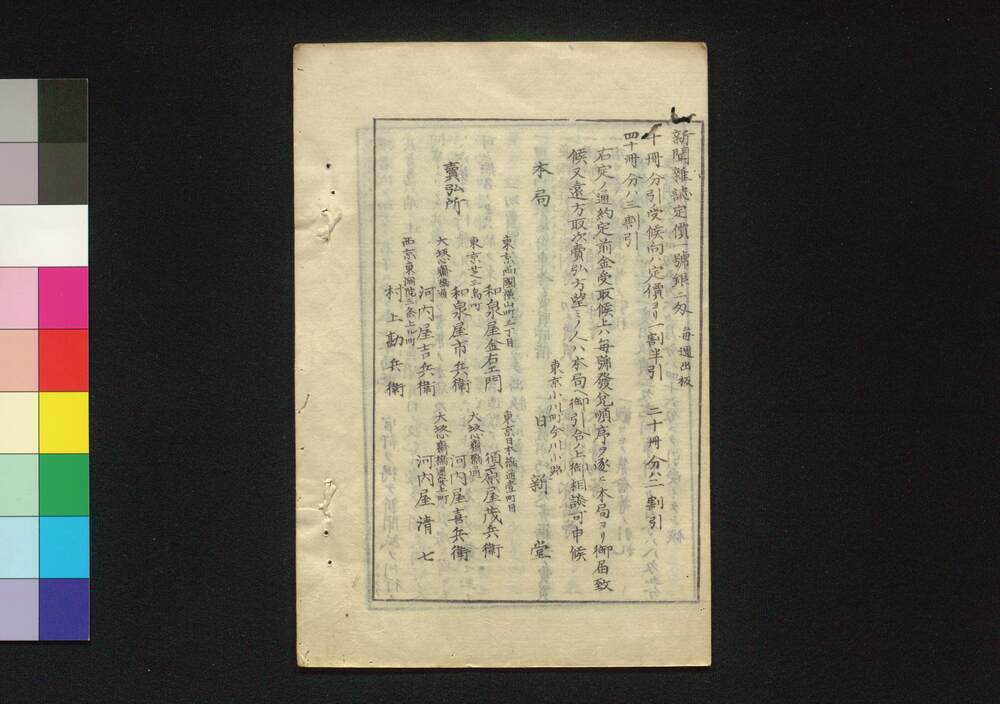 新聞雑誌定價一號銀二匁 毎週出板
十冊分引受候向ハ定價ヨリ一割半引 二十冊分ハ二割引
四十冊分ハ三割引
右定ノ通約定前金受取候上ハ毎號發兌順序ヲ逐ヒ本局ヨリ御届致
候又遠方取次賣弘方望ミノ人ハ本局ヘ御引合ノ上御相談可申候
東京小川町今川小路
本局 日新堂
賣弘所
東京両國横山町三丁目
和泉屋金右エ門
東京日本橋通壹町目
須原屋茂兵衛
東京芝三島町
和泉屋市兵衛
大坂心齋橋通
河内屋喜兵衛
大坂心齋橋通
河内屋吉兵衛
大坂心齋橋通安土町
河内屋清七
西京東洞院三条上ル町
村上勘兵衛